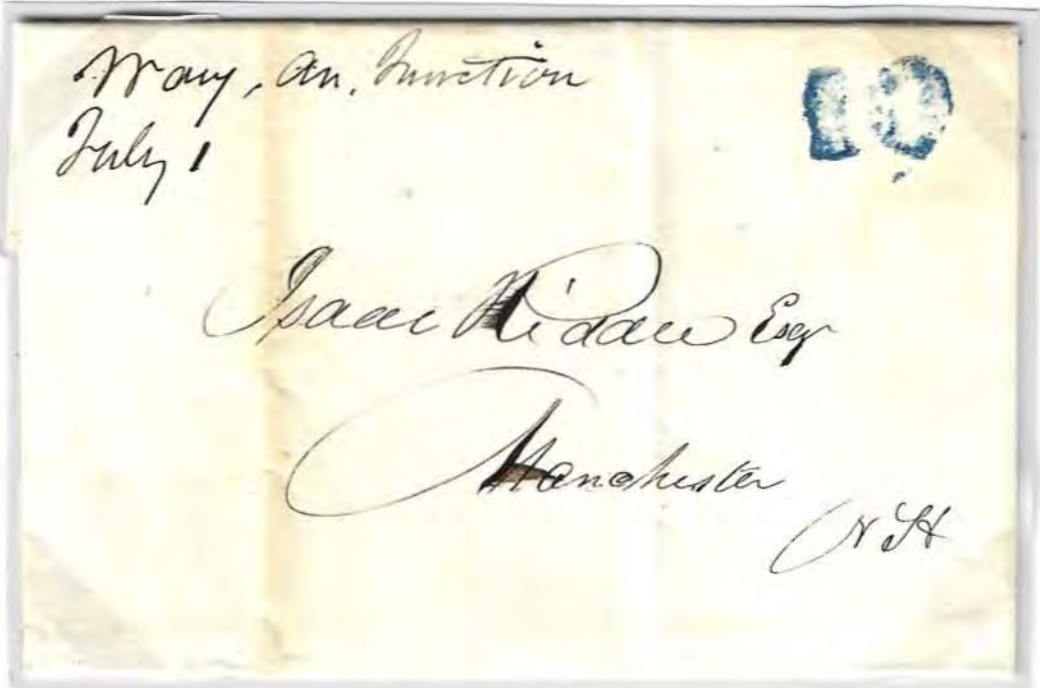 Way, An. Junction
10
July 1
Isaac Riddle Esqr
Manchester
N H